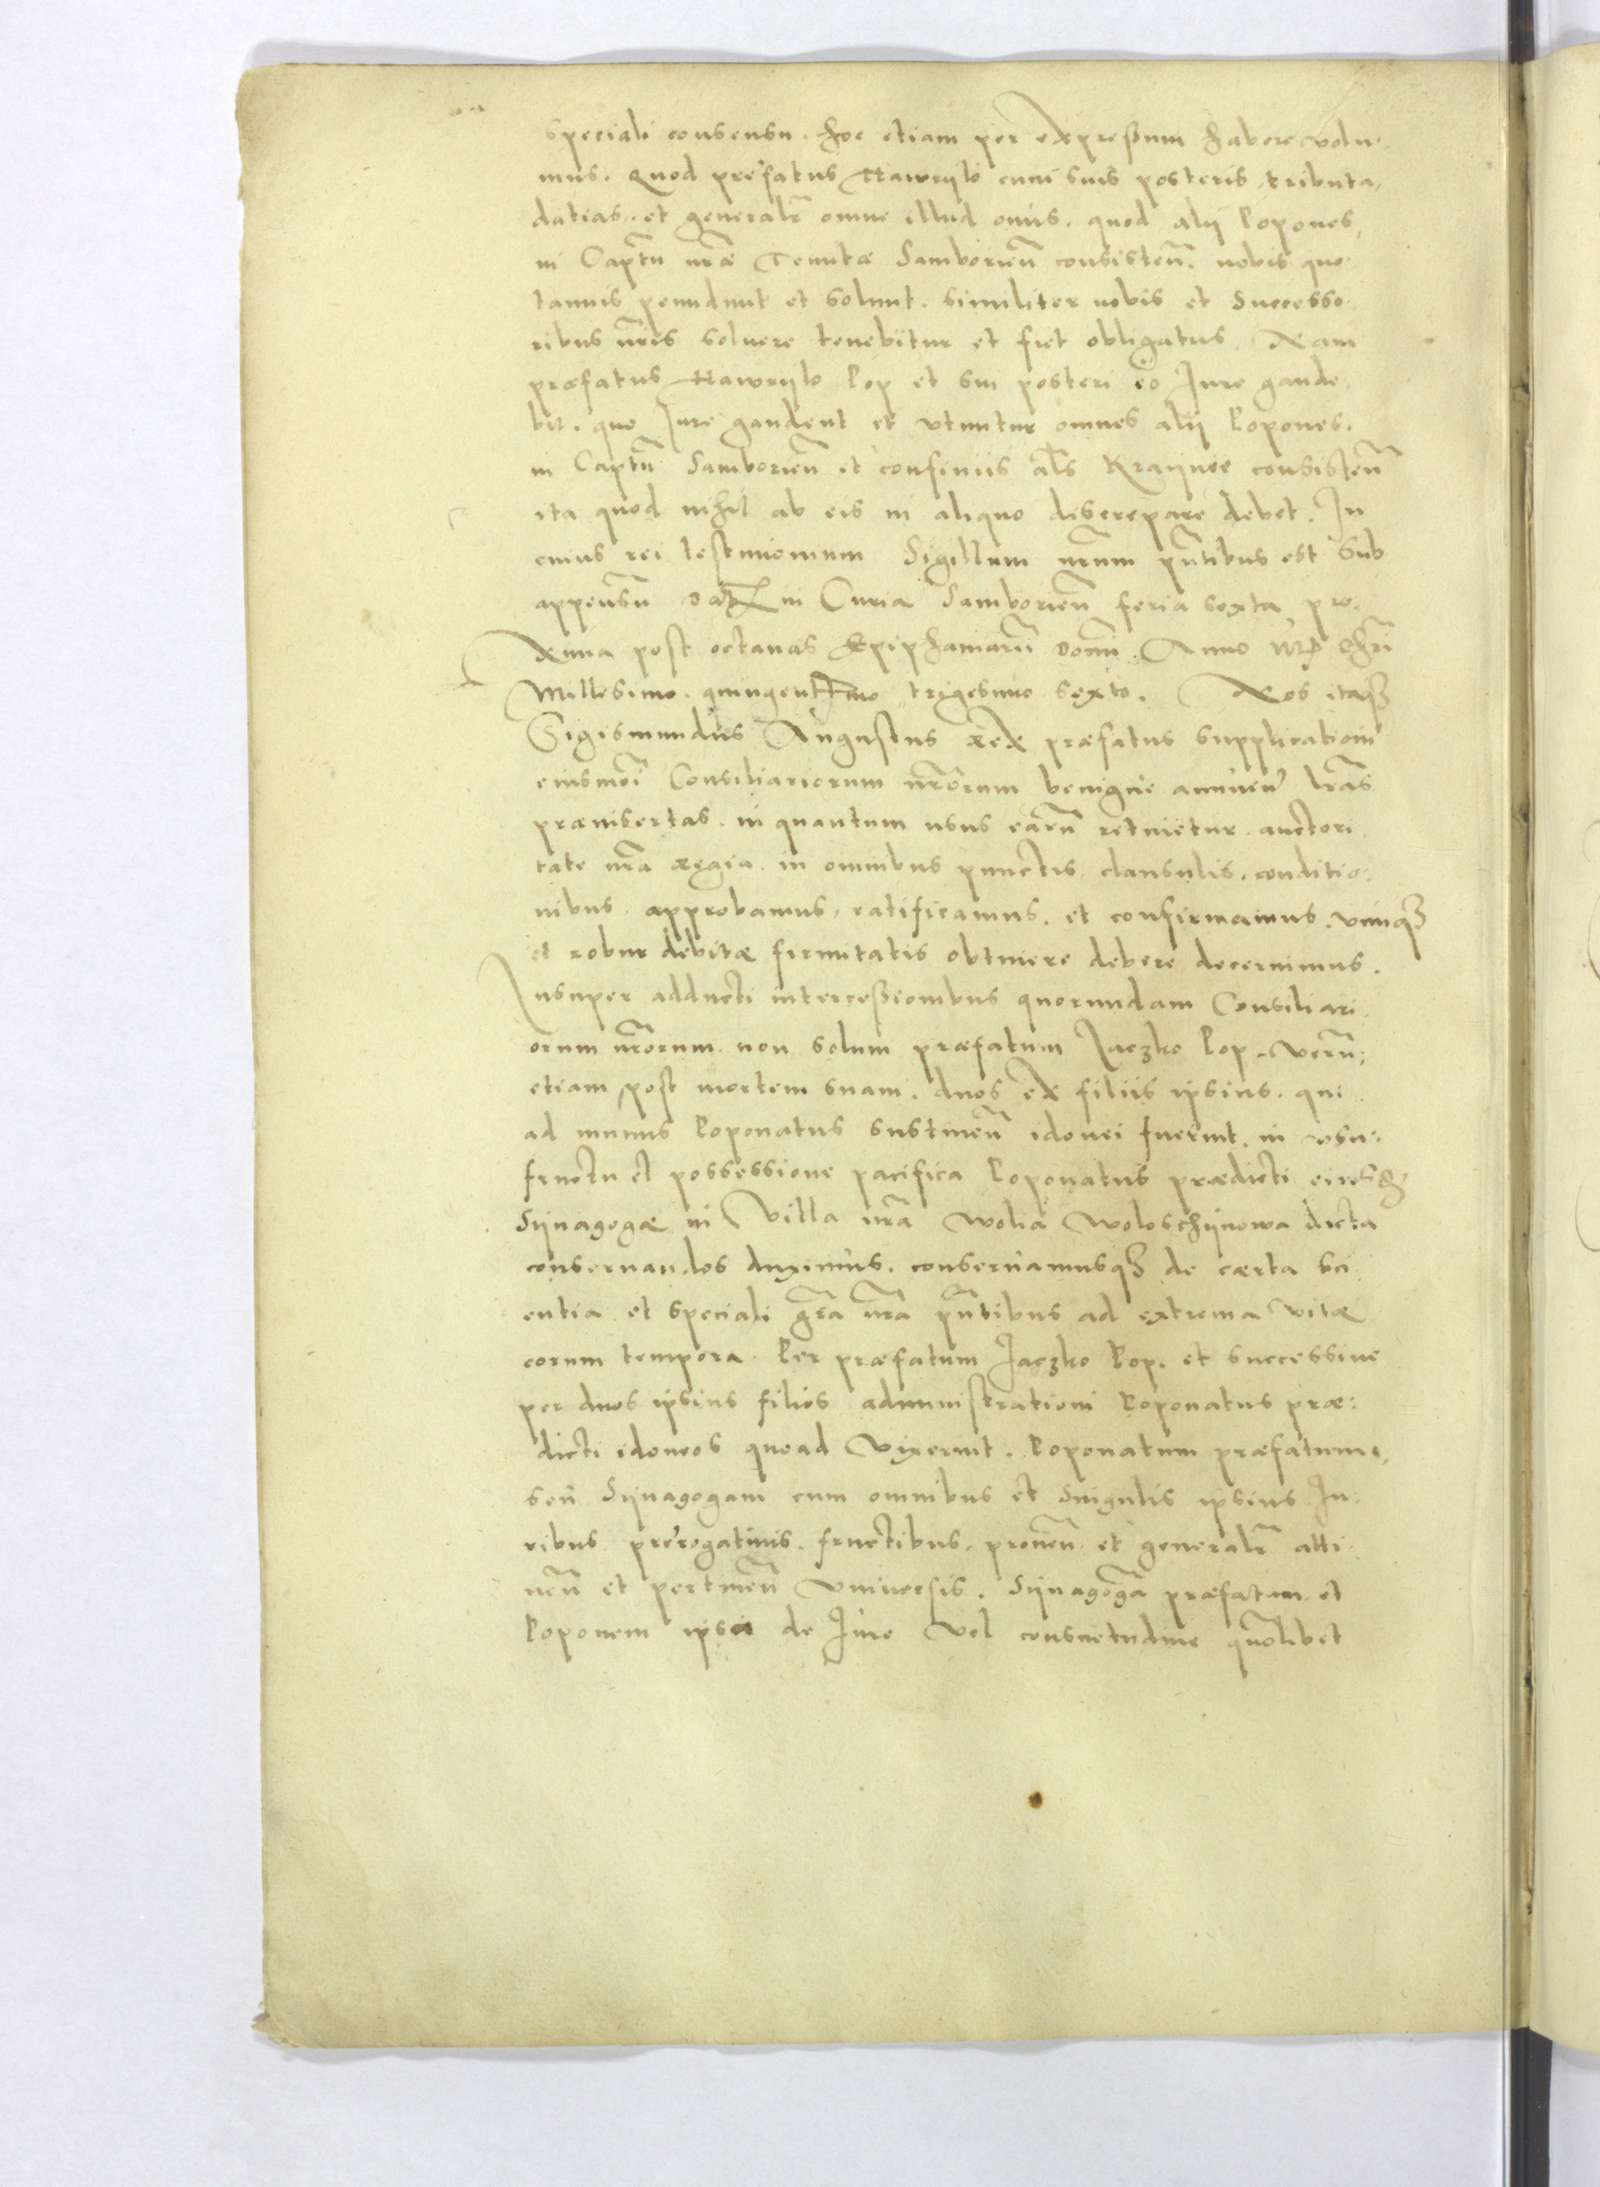 speciali consensu. Hoc etiam per expressum habere volu-
mus. Quod prefatus Hawrylo cum suis posteris, tributa,
datias, et generalr̃ omne illud onus, quod alij Popones,
in Captu nr̃æ Tenutæ Samborien̄ consisten̄, nobis quo-
tannis pendunt et solunt, similiter nobis et Successo-
ribus nr̃is soluere tenebitur et fiet obligatus. Nam
præfatus Hawrylo Pop et sui posteri eo Jure gaude-
bit, quo Jure gaudent et utuntur omnes alij Popones,
in Captu Samborien̄ et confiniis al̄s Kraynee consisten̄
ita quod nihil ab eis in aliquo discrepare debet. In
cuius rei testimonium Sigillum nr̃um pn̄tibus est sub
appensu Dat in Curia Samborien̄ feria sexta pro-
xima post octauas Epiphaniarū Domī. Anno Chri
Millesimo, quingentesimo, trigesimo sexto. Nos itaq̃
Sigismundus Augustus Rex præfatus supplicationi
eiusmōi Consiliariorum nr̃orum benigne annuen̄ lr̃as
præinsertas, in quantum usus earū retinetur, auctori-
tate nr̃a Regia, in omnibus punctis, clausulis, conditio-
nibus, approbamus, ratificamus, et confirmamus, vimq̃
et robur debitæ firmitatis obtinere debere decernimus.
Insuper adducti intercessionibus quorundam Consiliari-
orum nr̃orum non solum præfatum Jaczko Pop, verū
etiam post mortem suam, duos ex filiis ipsius, qui
ad munus Poponatus sustinen̄ idonei fuerint, in usu-
fructu et possessione pacifica Poponatus prædicti eiusq̃
Synagogæ in Villa nr̃a Wolia Woloschynowa dicta
conseruandos duximus, conseruamusq̃ de certa sci-
entia et speciali gr̃a nr̃a pn̄tibus ad extrema vitæ
eorum tempora. Per præfatum Jaczko Pop, et successiue
per duos ipsius filios administrationi Poponatus præ-
dicti idoneos quoad vixerint. Poponatum præfatum,
seu Synagogam cum omnibus et singulis ipsius Ju-
ribus prerogatiuis, fructibus, prouen̄ et generalr̃ atti-
nen̄ et pertinen̄ vniuersis, Synagogā præfatam et
Poponem ipsū de Jure vel consuetudine quōlibet